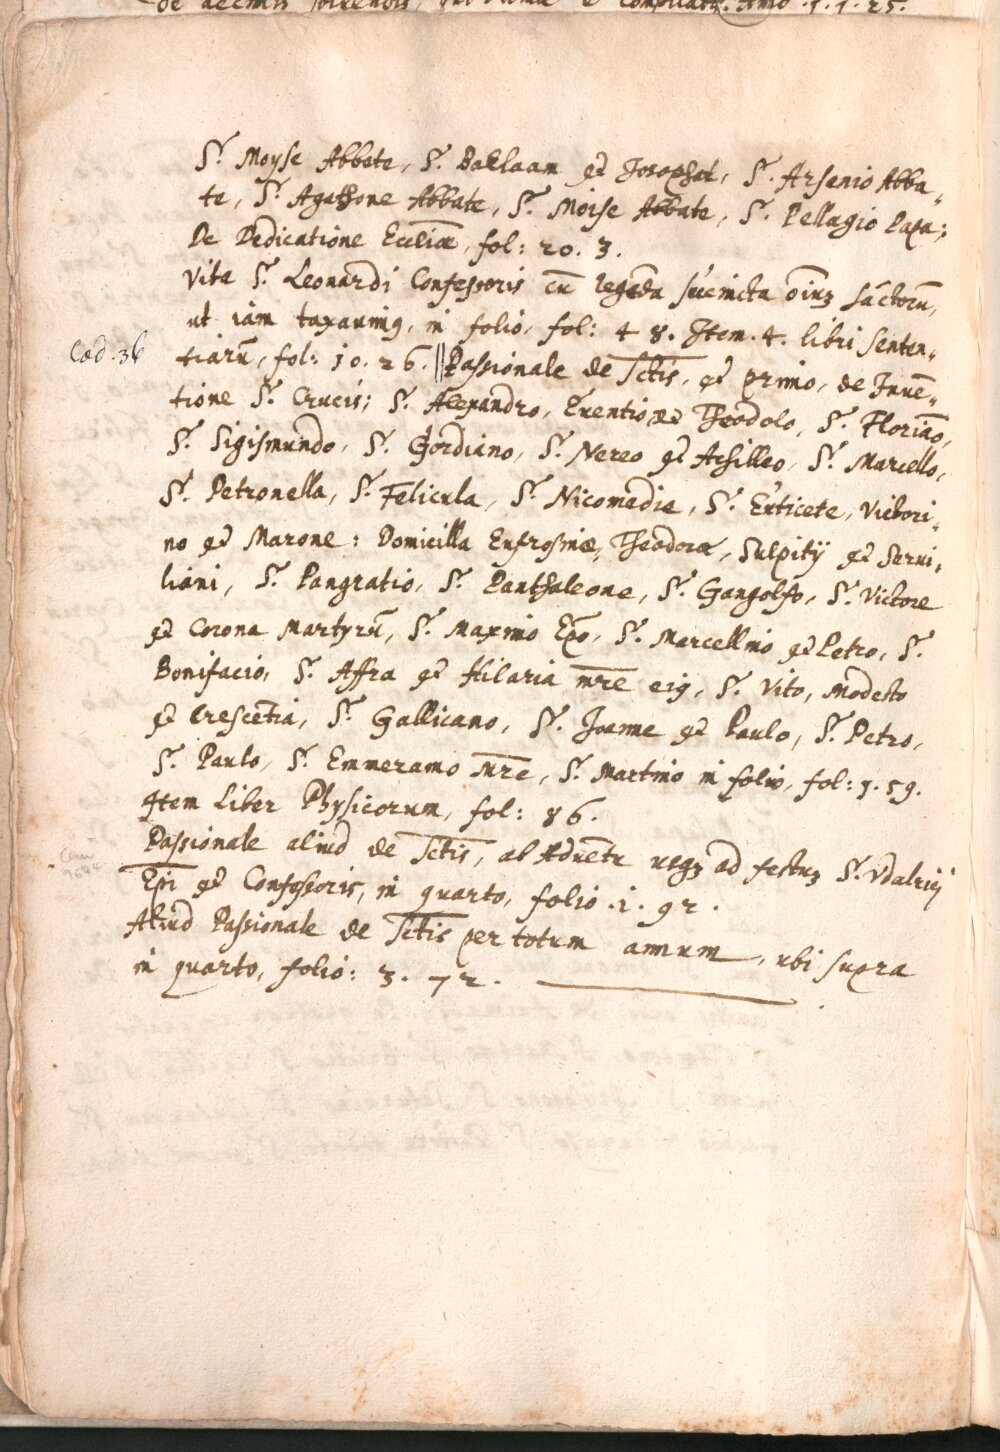 S. Moyse Abbate, S. Baklaam et Josaphat, S. Arsenio Abba„
te, S. Agathone Abbate, S. Moise Abbate, S. Pellagio Papa;
De Dedicatione Eccliæ, fol: 20. 3.
Vita S. Leonardi Confessoris cū legēda sucincta oīuʒ sāctorū,
ut iam taxauimꝰ, in folio, fol: 4 8. Item. 4. libri senten„
Cod. 36
tiarū, fol: 10. 26. || Passionale de Sctis, et primo, de Inuē„
tione S. Crucis; S. Alexandro, Euentio et Theodolo, S. Floriāo,
S. Sigismundo, S. Gordiano, S. Nereo et Achilleo, S. Marcello,
S. Petronella, S. Felicula, S. Nicomedia, S. Euticete, Victori„
no et Marone: Domicilla Eufrosinæ, Theodoræ, Sulpitij et Serui„
liani, S. Pangratio, S. Panthaleone, S. Gangolfo, S. Victore
et Corona Martyrū, S. Maximo Epo, S. Marcellino et Petro, S.
Bonifacio, S. Affra et Hilaria mre eiꝰ, S. Vito, Modesto
et Crescētia, S. Gallicano, S. Joanne et Paulo, S. Petro,
S. Paulo, S. Emmeramo Mre, S. Martino in folio, fol: 1. 59.
Item Liber Physicorum, fol: 86.
Passionale aliud de Sctis, ab Aduētu usqʒ ad festuʒ S. Vdalrici
Epi et Confessoris, in quarto, folio .1. 92.
Aliud Passionale de Sctis per totum annum, ubi supra
in quarto, folio: 3. 72.